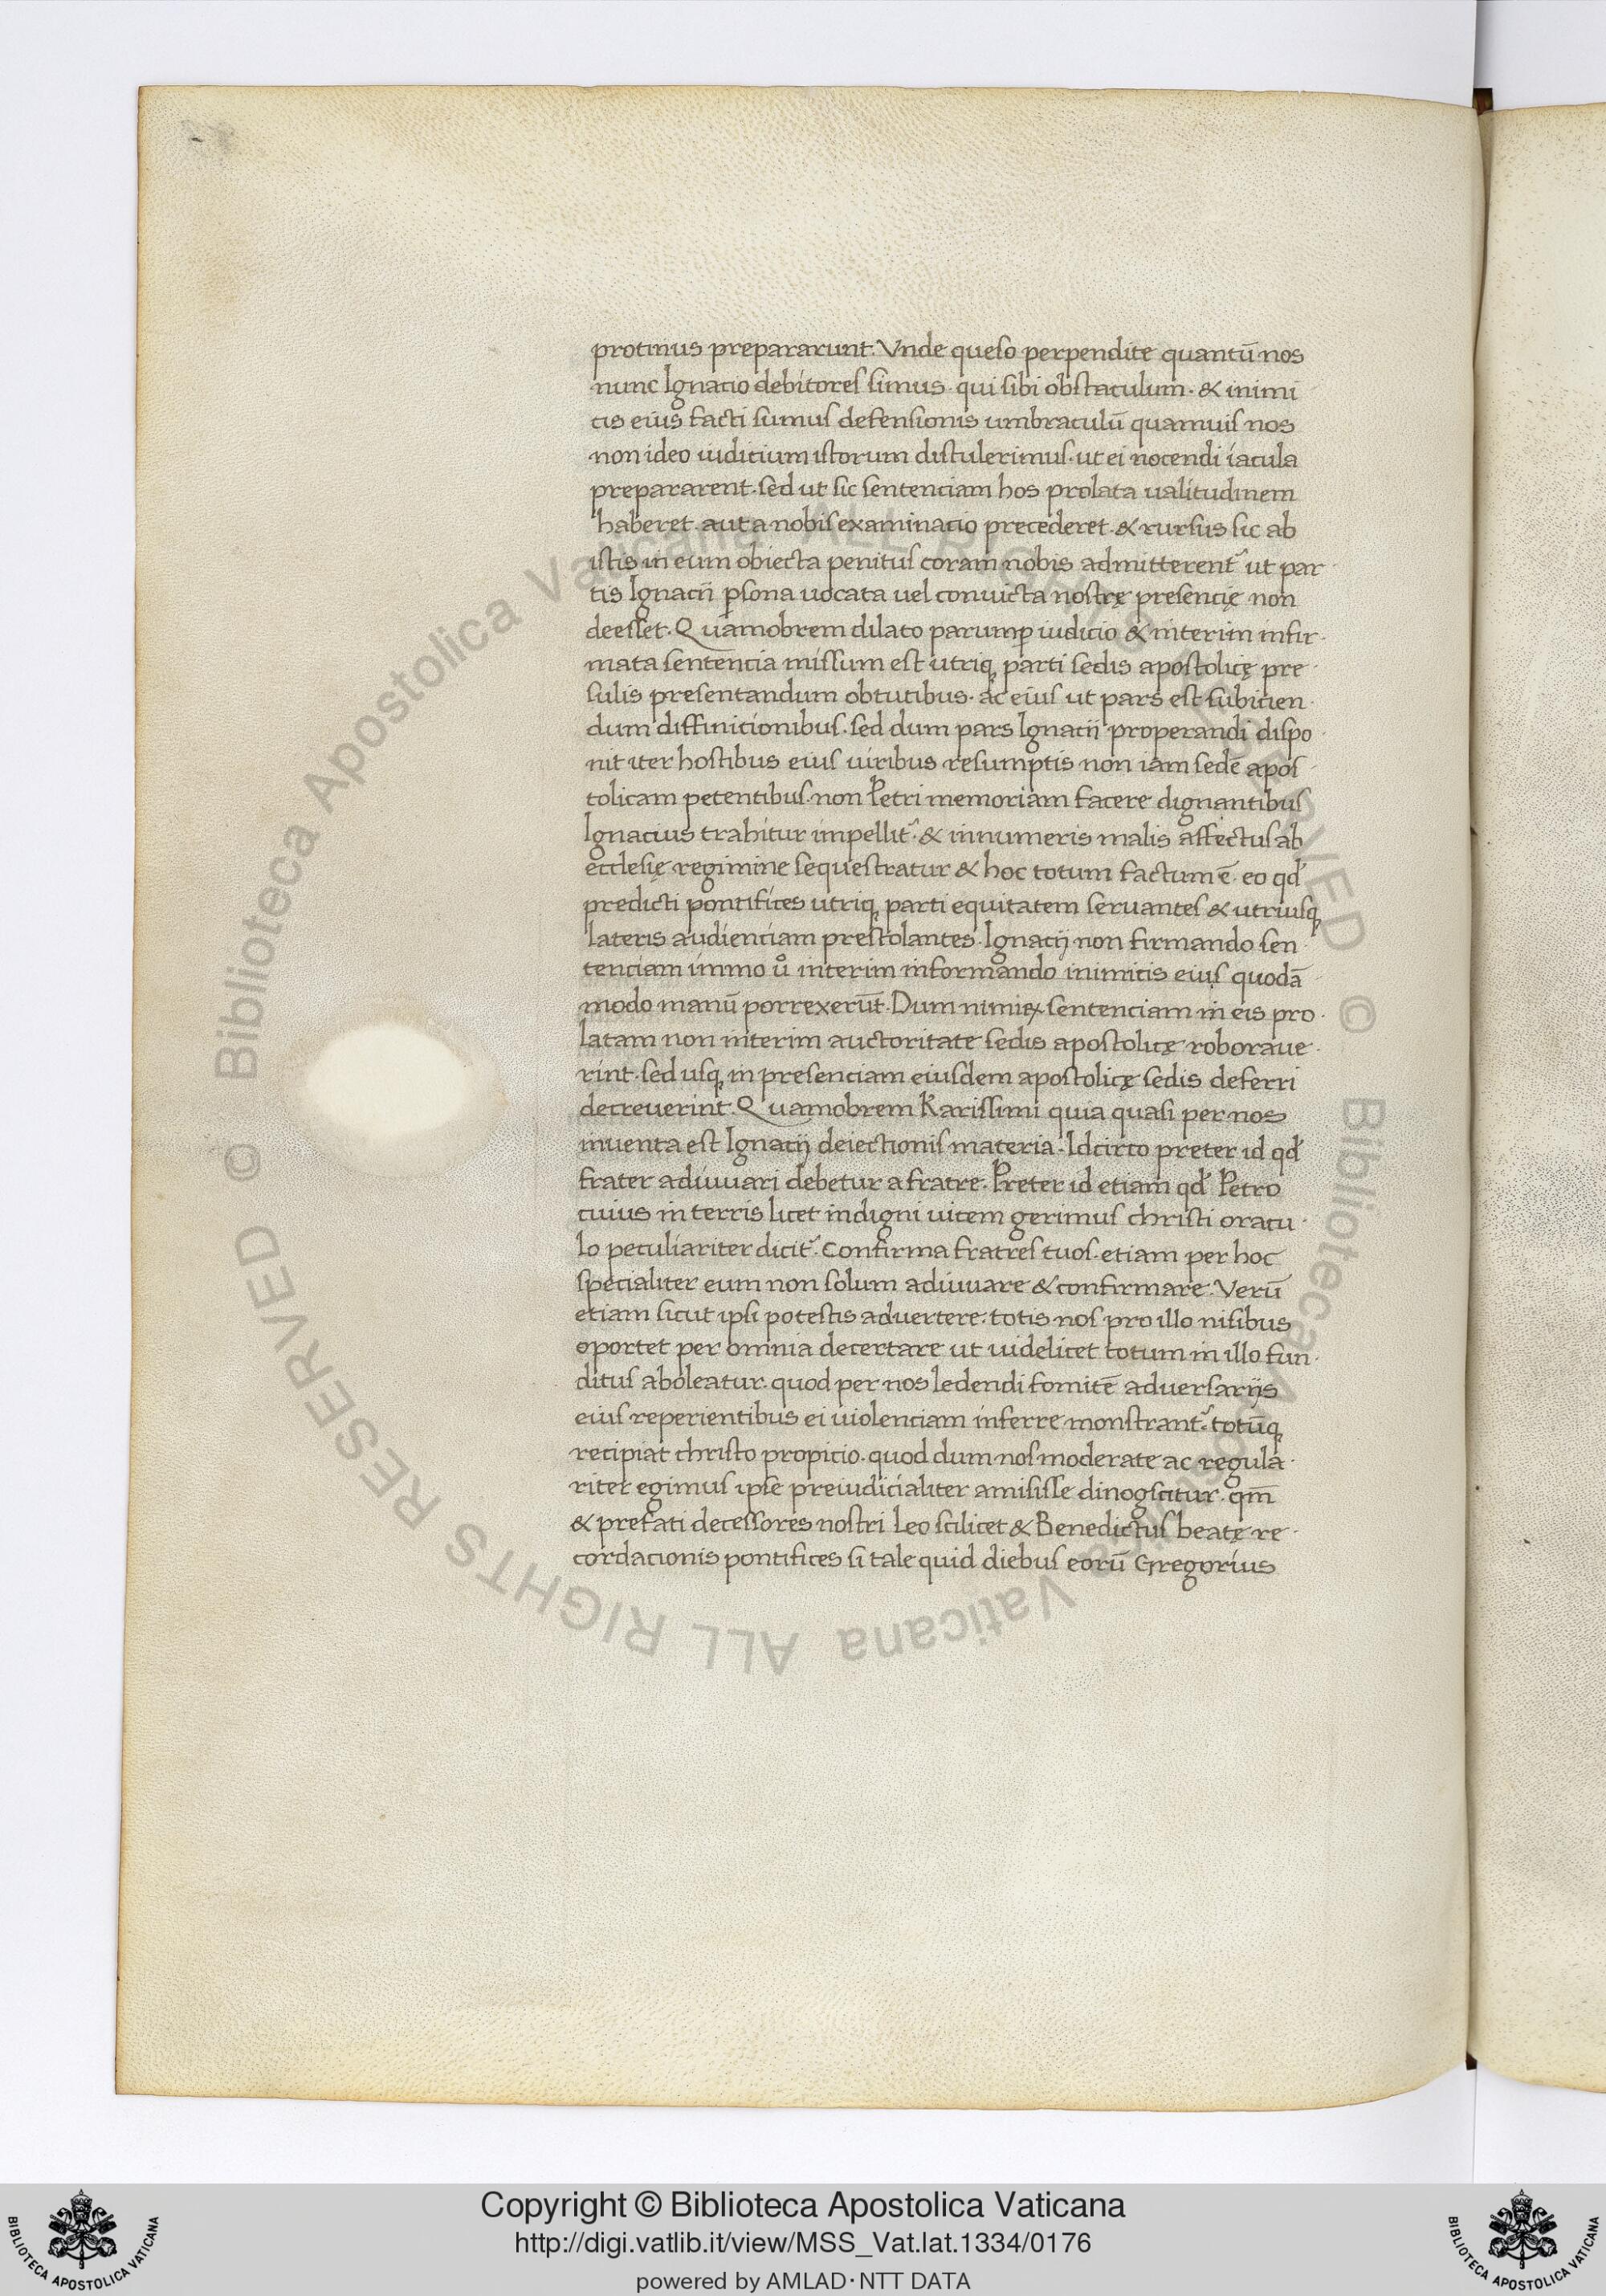 protinus prepararunt. Vnde queso perpendite quantū nos
nunc Ignacio debitores simus. qui sibi obstaculum. & inimi
cis eius facti sumus defensionis umbraculū quamuis nos
non ideo iudicium istorum distulerimus. ut ei nocendi iacula
prepararent. sed ut sic sentenciam hos prolata ualitudinem
haberet. aut a nobis examinacio precederet. & rursus sic ab
istis in eum obiecta penitus coram nobis admitterent᷑ ut par
tis Ignacii ꝑsona uocata uel conuicta nostrę presencię non
deesset. Quamobrem dilato parumꝑ iudicio & interim infir
mata sentencia missum est utriqꝫ parti sedis apostolicę pre
sulis presentandum obtutibus. ac eius ut pars est subicien
dum diffinicionibus. sed dum pars Ignacii properandi dispo
nit iter hostibus eius uiribus resumptis non iam sedē apos
tolicam petentibus. non Petri memoriam facere dignantibus
Ignacius trahitur impellit᷑. & innumeris malis affectus ab
ecclesię regimine sequestratur & hoc totum factum ē. eo qd̕
predicti pontifices utriqꝫ parti equitatem seruantes & utriusqꝫ
lateris audienciam prestolantes. Ignacij non firmando sen
tenciam immo uͦ interim informando inimicis eius quodā
modo manū porrexerūt. Dum nimiꝝ sentenciam in eis pro
latam non interim auctoritate sedis apostolicę roboraue
rint. sed usqꝫ in presenciam eiusdem apostolicę sedis deferri
decreuerint. Quamobrem Karissimi quia quasi per nos
inuenta est Ignacij deiectionis materia. Idcirco preter id qd̕
frater adiuuari debetur a fratre. Preter id etiam qd̕ Petro
cuius in terris licet indigni uicem gerimus christi oracu
lo peculiariter dicit᷑. Confirma fratres tuos. etiam per hoc
specialiter eum non solum adiuuare & confirmare. Verū
etiam sicut ipsi potestis aduertere. totis nos pro illo nisibus
oportet per omnia decertare ut uidelicet totum in illo fun
ditus aboleatur. quod per nos ledendi fomitē aduersarijs
eius reperientibus ei uiolenciam inferre monstrant᷑. totūqꝫ
recipiat christo propicio. quod dum nos moderate ac regula
riter egimus ipse preiudicialiter amisisse dinogscitur. qm̄
& prefati decessores nostri Leo scilicet & Benedictus beatę re
cordacionis pontifices si tale quid diebus eorū Gregorius
© Biblioteca Apostolica Vaticana ALL RIGHTS RESERVED
© Biblioteca Apostolica Vaticana ALL RIGHTS RESERVED
Copyright © Biblioteca Apostolica Vaticana
http://digi.vatlib.it/view/MSS_Vat.lat.1334/0176
powered by AMLAD·NTT DATA
BIBLIOTECA APOSTOLICA VATICANA
BIBLIOTECA APOSTOLICA VATICANA